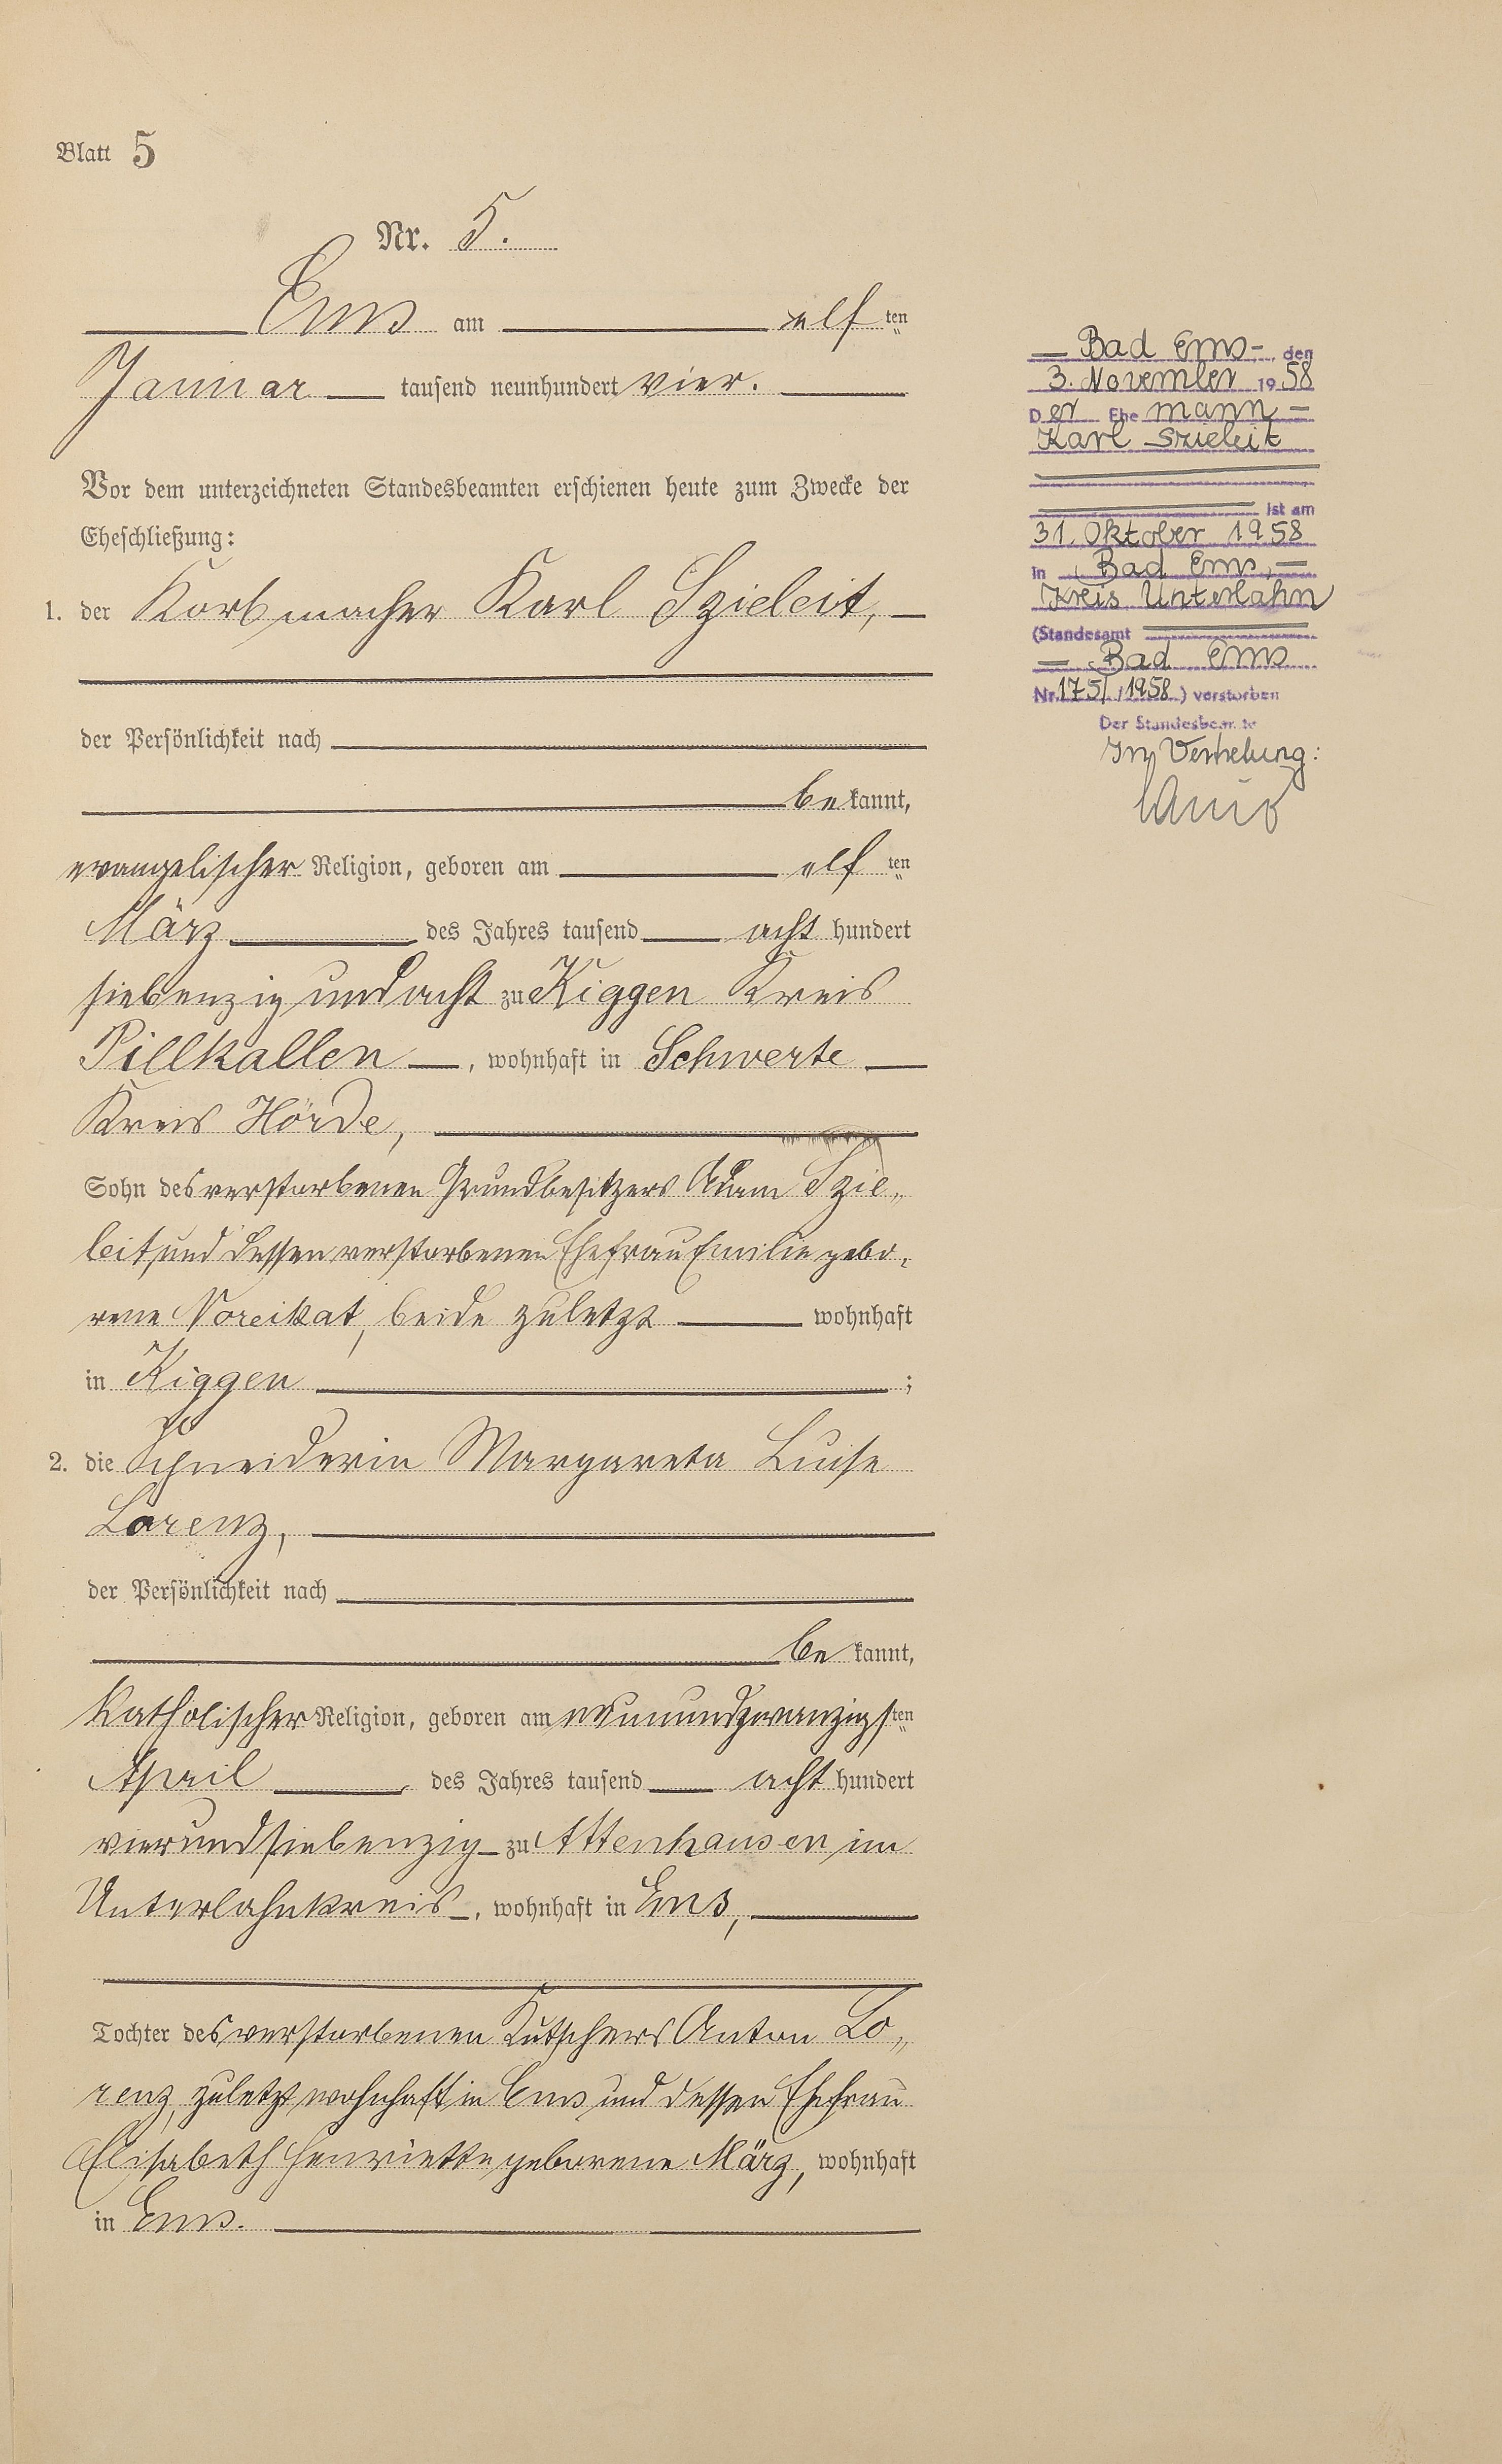 Blatt 5
Nr. 5.
Ems am elf ten
Januar tausend neunhundert vier.
Vor dem unterzeichneten Standesbeamten erschienen heute zum Zwecke der
Eheschließung:
1. der Korbmacher Karl Szieleit,
der Persönlichkeit nach
be kannt,
evangelischer Religion, geboren am elf ten
März des Jahres tausend acht hundert
siebenzig und acht zu Kiggen Kreis
Pillkallen, wohnhaft in Schwerte
Kreis Hörde,
Sohn des verstorbenen Grundbesitzers Adam Szie„
leit und dessen verstorbenen Ehefrau Emilie gebo„
rene Noreikat, beide zuletzt wohnhaft
in Kiggen ;
2. die Schneiderin Margareta Luise
Lorenz,
der Persönlichkeit nach
be kannt,
katholischer Religion, geboren am neunundzwanzigsten
April des Jahres tausend acht hundert
vierundsiebenzig zu Attenhausen im
Unterlahnkreis, wohnhaft in Ems,
Tochter des verstorbenen Kutschers Anton Lo„
renz, zuletzt wohnhaft in Ems und dessen Ehefrau
Elisabeth Henriette geborene März, wohnhaft
in Ems.
Bad Ems, den
3. November 1958
Der Ehemann
Karl Szieleit
ist am
31. Oktober 1958
in Bad Ems,
Kreis Unterlahn
(Standesamt
Bad Ems
Nr. 175/1958) verstorben
Der Standesbeamte
In Vertretung: